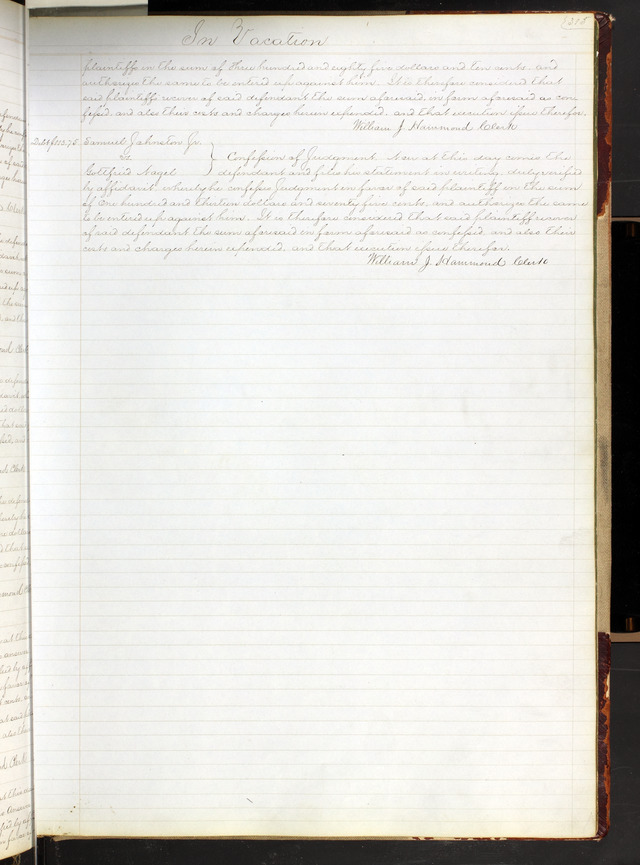 215
In Vacation
plaintiffs in the sum of three hundred and eighty five dollars and ten cents and
authorize the same to be entered up against him. It is therefore considered that
said plaintiffs recover of said defendant the sum aforesaid in form aforesaid as con
fessed, and also their costs and charges herein expended, and that execution issue therefor.
William J Hammond Clerk
Debt $113.75 Samuel Johnston Jr.
vs } Confession of Judgment. Now at this day comes the
Gottfried Nagel defendant and files his statement in writing, duly verified
by affidavit whereby he confesses Judgment in favor of said plaintiff in the sum
of One hundred and thirteen dollars and seventy five cents, and authorizes the same
to be entered up against him. It is therefore considered that said plaintiff recover
of said defendant the sum aforesaid in form aforesaid as confessed, and also their
costs and charges herein expended, and that execution issue therefor.
William J. Hammond Clerk